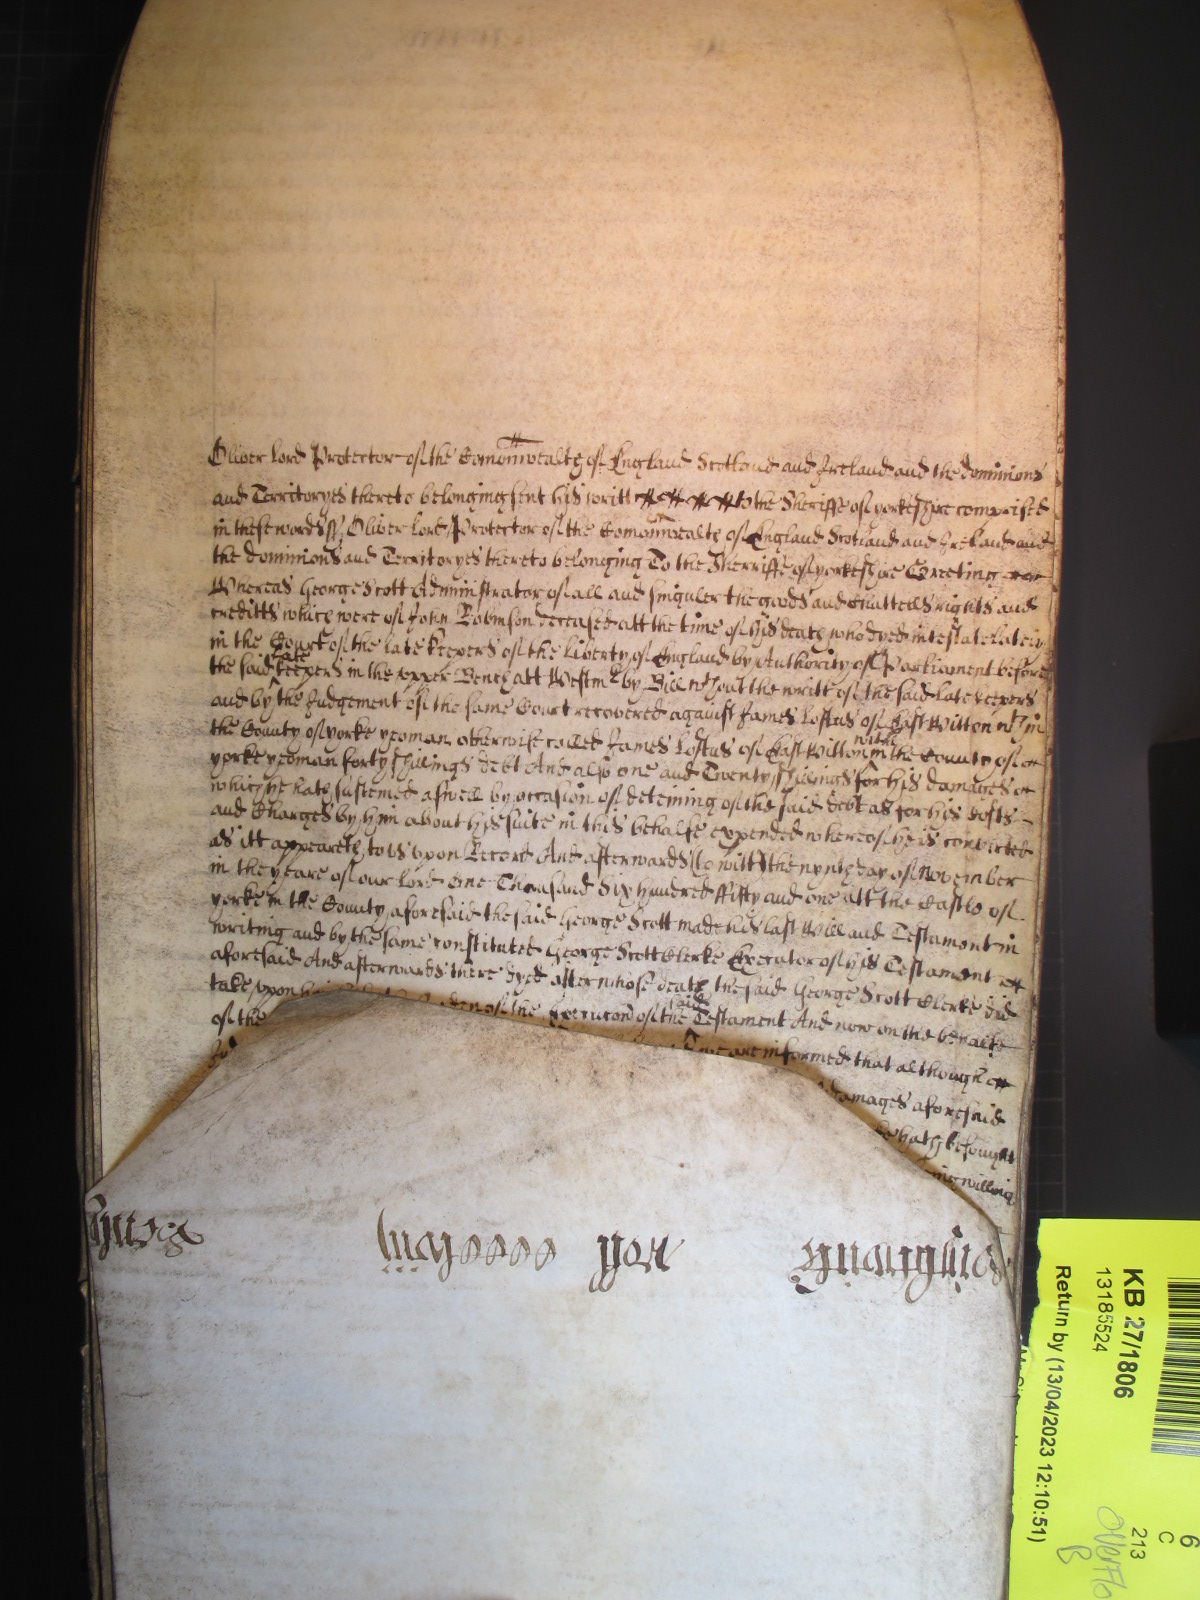 Oliver Lord Protector of the Comonwealth of England Scotland and Ireland and the dominions
and Territoryes thereto belonging sent his writt to the Sheriffe of yorkeshire comprised
in these words ss Oliver Lord Protector of the Comonwealth of England Scotland and Ireland and
the dominions and Territoryes thereto belonging To the Sherriffe of yorkeshire Greeting
Whereas George Scott Administrator of all and singuler the goods and Chattells rights and
creditts which were of John Robinson deceased att the time of his death who dyed intestate lately
in the Court of the late keepers of the liberty of England by Authority of Parliament before
the said late keepers in the upper Bench att Westmr by Bill wthout the writt of the said late keepers
and by the Judgement of the same Court recovered against James Loftus of East Witton wthin
the County of yorke yeoman otherwise called James Loftus of East Witton within the County of
yorke yeoman forty shillings debt And also one and Twenty shillings for his damages
which he hath susteined aswell by occasion of deteining of the said debt as for his Costs
and Charges by him about his suite in this behalfe expended whereof he is convicted
as itt appeareth to us upon Record And afterwards (to witt) the nynth day of November
in the yeare of our Lord One Thousand Six hundred ffifty and one att the Castle of
yorke in the County aforesaid the said George Scott made his last Will and Testament in
writing and by the same constituted George Scott Clerke Executor of his Testament
aforesaid And afterwards there dyed after whose death the said George Scott Clerke did
take upon the Execucon of the said Testament And now on the behalfe
of the Wee are informed that although
damages aforesaid
he hath besought
being willing
roll
KB 27/1806
13185524
Return by (13/04/2023 12:10:51)
6
C
213
Overflo
B